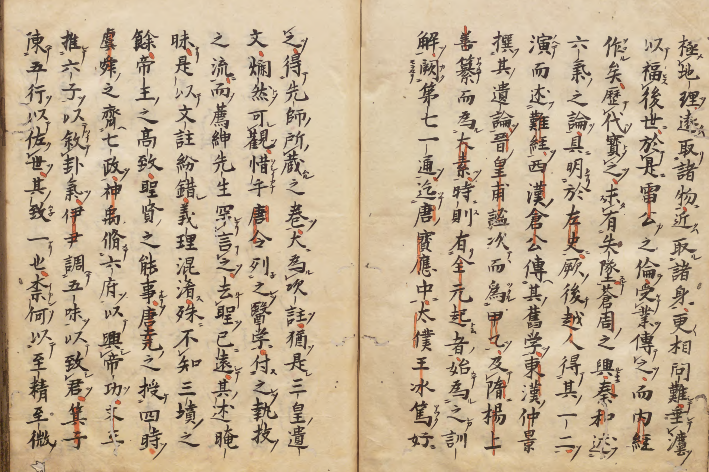 極地理遠取諸物近取諸身更相問難垂法
以福後世於是雷公之倫受業傳之而内經
作矣歷代寶之未有失墜蒼周之興秦和述
六氣之論具明於左史厥後越人得其一二
演而述難經西漢倉公傳其舊学東漢仲景
撰其遺論晉皇甫謐次而為甲乙及隋楊上
善纂而為大素時則有全元起者始為之訓
解闕第七一通迄唐寶應中太僕王冰篤好
之得先師所蔵之卷大為次註猶是三皇遺
文爛然可觀惜乎唐令列之醫学付之執技
之流而薦紳先生罕言之去聖已遠其述晻
昧是以文註紛錯義理混淆殊不知三墳之
餘帝王之高致聖賢之能事唐堯之授四時
虞舜之齊七政神禹脩六府以興帝功文王
推六子以敘卦氣伊尹調五味以致君箕子
陳五行以佐世其致一也柰何以至精至微